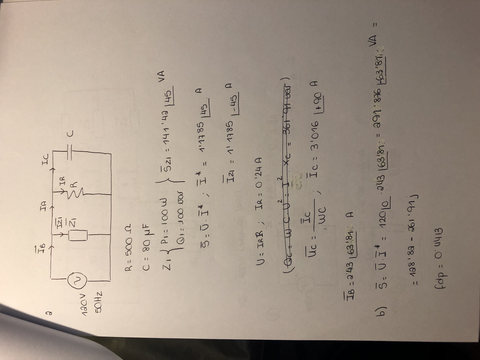 2
I̅B
I̅Z1
I̅A
IR
I̅C
Z̅1
R
C
120V
50Hz
R = 500 Ω
C = 80 μF
Z1 { P1 = 100 W
Q1 = 100 var } S̅Z1 = 141'42 |45 VA
S̅ = U̅ I̅* ; I̅* = 1'1785 |45 A
I̅Z1 = 1'1785 |-45 A
U = IR R ; IR = 0'24 A
(QC = W C U² = I² XC = 361'91 var)
U̅C = I̅C / WC ; I̅C = 3'016 |+90 A
I̅B = 2'43 |63'81 A
b) S̅ = U̅ I̅* = 120|0 2'43 |63'81 = 291'876 |63'81 VA =
= 128'82 - 261'91j
fdp = 0'4413